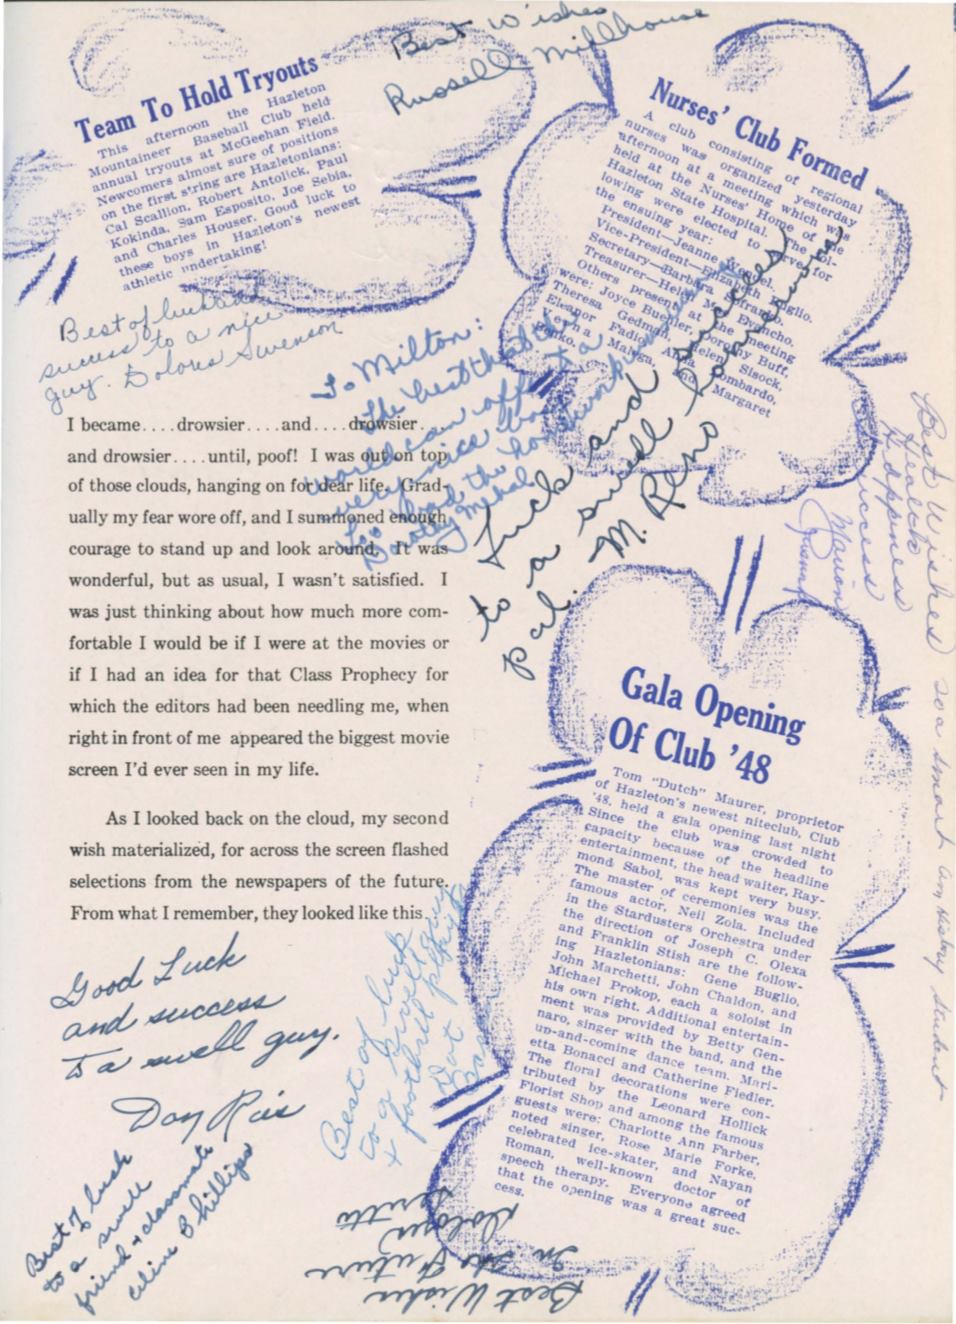 Best Wishes
Russell Millhouse
Team To Hold Tryouts
This afternoon the Hazleton
Mountaineer Baseball Club held
annual tryouts at McGeehan Field.
Newcomers almost sure of positions
on the first string are Hazletonians:
Cal Scallion, Robert Antolick, Paul
Kokinda, Sam Esposito, Joe Sebia,
and Charles Houser. Good luck to
these boys in Hazleton's newest
athletic undertaking!
Best of luck and
success to a nice
guy. Dolores Swenson
Nurses' Club Formed
A club consisting of regional
nurses was organized yesterday
afternoon at a meeting which was
held at the Nurses' Home of the
Hazleton State Hospital. The fol-
lowing were elected to serve for
the ensuing year:
President—Jeanne
Vice-President—Elizabeth
Secretary—Barbara
Treasurer—Helen
Others present at the meeting
were: Joyce Buehler, Dorothy Buff,
Theresa Gedman, Helen Sisock,
Eleanor Fadick, Lombardo,
Margaret
To Milton:
The best that the
world can offer to a
very nice boy
Too bad the homework
Dorothy
Luck and success
to a swell homeroom
pal. M. Reno
Best Wishes
Health
Happiness
Success
to a smart am. history student
Marion
I became....drowsier....and....drowsier
and drowsier....until, poof! I was out on top
of those clouds, hanging on for dear life. Grad-
ually my fear wore off, and I summoned enough
courage to stand up and look around. It was
wonderful, but as usual, I wasn't satisfied. I
was just thinking about how much more com-
fortable I would be if I were at the movies or
if I had an idea for that Class Prophecy for
which the editors had been needling me, when
right in front of me appeared the biggest movie
screen I'd ever seen in my life.
As I looked back on the cloud, my second
wish materialized, for across the screen flashed
selections from the newspapers of the future.
From what I remember, they looked like this.
Gala Opening
Of Club '48
Tom "Dutch" Maurer, proprietor
of Hazleton's newest niteclub, Club
'48, held a gala opening last night
Since the club was crowded to
capacity because of the headline
entertainment, the head waiter, Ray-
mond Sabol, was kept very busy.
The master of ceremonies was the
famous actor, Neil Zola. Included
in the Stardusters Orchestra under
the direction of Joseph C. Olexa
and Franklin Stish are the follow-
ing Hazletonians: Gene Buglio,
John Marchetti, John Chaldon, and
Michael Prokop, each a soloist in
his own right. Additional entertain-
ment was provided by Betty Gen-
naro, singer with the band, and the
up-and-coming dance team, Mari-
etta Bonacci and Catherine Fiedler.
The floral decorations were con-
tributed by the Leonard Hollick
Florist Shop and among the famous
guests were: Charlotte Ann Farber,
noted singer, Rose Marie Forke,
celebrated ice-skater, and Nayan
Roman, well-known doctor of
speech therapy. Everyone agreed
that the opening was a great suc-
cess.
Good Luck
and success
To a swell guy.
Best of luck
to a swell guy
+ football player
Best of luck
to a swell
friend + classmate
Celine Phillips
Best Wishes
In The Future
Dolores